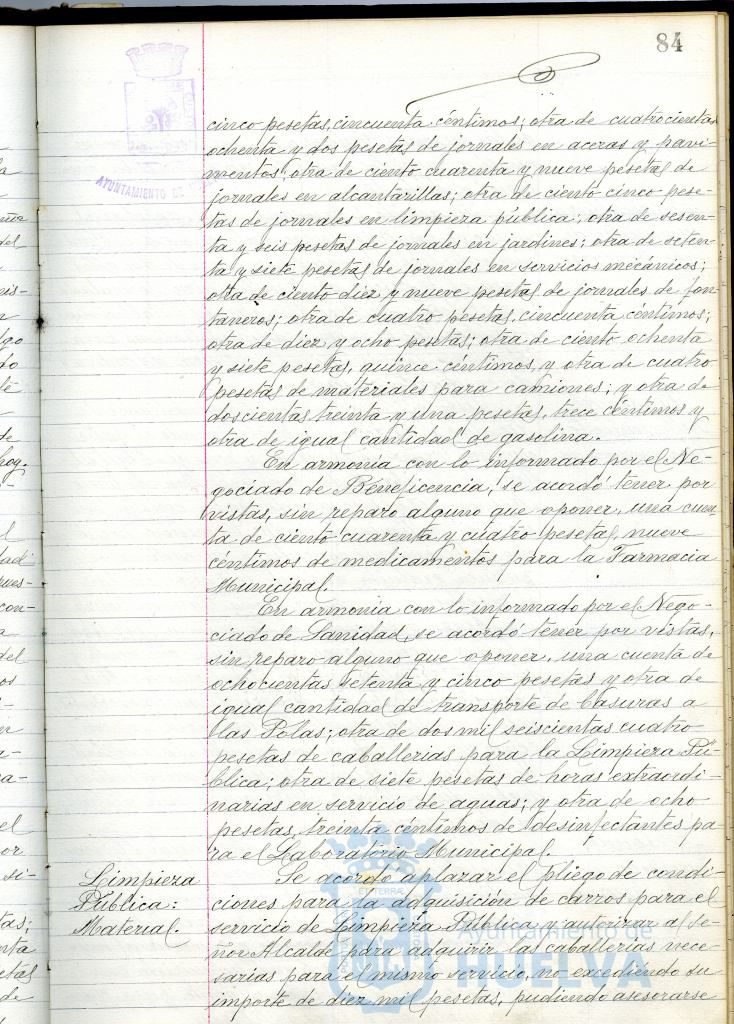 84
cinco pesetas, cincuenta céntimos; otra de cuatrocientas
ochenta y dos pesetas de jornales en aceras y pavi-
mentos; otra de ciento cuarenta y nueve pesetas de
jornales en alcantarillas; otra de ciento cinco pese-
tas de jornales en limpieza pública; otra de sesen-
ta y seis pesetas de jornales en jardines; otra de seten-
ta y siete pesetas de jornales en servicios mecánicos;
otra de ciento diez y nueve pesetas de jornales de fon-
taneros; otra de cuatro pesetas, cincuenta céntimos;
otra de diez y ocho pesetas; otra de ciento ochenta
y siete pesetas, quince céntimos, y otra de cuatro
pesetas de materiales para camiones; y otra de
doscientas treinta y una pesetas, trece céntimos y
otra de igual cantidad de gasolina.
En armonía con lo informado por el Ne-
gociado de Beneficencia, se acordó tener por
vistas, sin reparo alguno que oponer, una cuen-
ta de ciento cuarenta y cuatro pesetas, nueve
céntimos de medicamentos para la Farmacia
Municipal.
En armonía con lo informado por el Nego-
ciado de Sanidad, se acordó tener por vistas,
sin reparo alguno que oponer, una cuenta de
ochocientas setenta y cinco pesetas y otra de
igual cantidad de transporte de basuras a
las Polas; otra de dos mil seiscientas cuatro
pesetas de caballerías para la Limpieza Pú-
blica; otra de siete pesetas de horas extraordi-
narias en servicio de aguas; y otra de ocho
pesetas, treinta céntimos de desinfectantes pa-
ra el Laboratorio Municipal.
Limpieza
Pública:
Material.
Se acordó aplazar el pliego de condi-
ciones para la adquisición de carros para el
servicio de Limpieza Pública y autorizar al se-
ñor Alcalde para adquirir las caballerías nece-
sarias para el mismo servicio, no excediendo su
importe de diez mil pesetas, pudiendo asesorarse
AYUNTAMIENTO DE
Ayuntamiento de
HUELVA